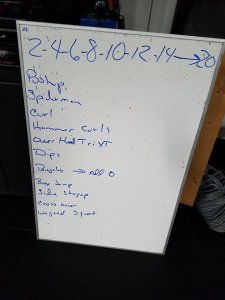 2-4-6-8-10-12-14→20
Pushup
Spiderman
Curl
Hammer Curls
Over Head Tri XT
Dips
→ Add 0
Box Jump
Side Stepup
Cross over
Weighted Squat